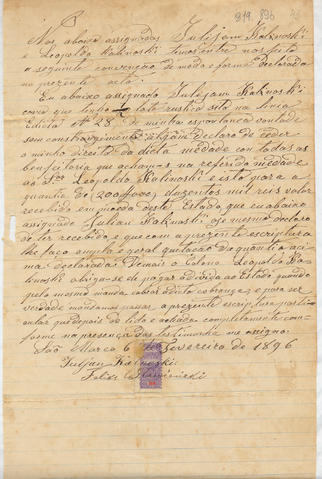 919.896
Nos abaixo assignados Juljam Kaknoski
e Leopoldo Kalinoski temos entre nos feito
a seguinte convenção de modo e forma declarada
no prezente acto.
Eu abaixo assignado Juljam Kaknoski
como que tenho 1/2 lote rustico sito na linea
Edith Nº 28 de minha espontanea vontade
sem constrangimento algum declaro de ceder
o minho direito da dicta medade com todas as
benfeitorias que acham-s na referida medade
ao Snr Leopoldo Kalinoski e isto para a
quantia de (200$000) duzentos mil reis valor
recebido em moeda deste Estado, que eu abaixo
assignado Julian Kaknoski oje mesmo declaro
de ter recebido, e que com a prezente escriptura
lhe faço ampla e geral quitação da quantia aci-
ma declarada. Demais o Colono Leopoldo Ka-
linoski obriga-se de pagar a divida ao Estado quando
pelo mesmo manda cobrar a dita cobrança, e para ser
verdade mandamos passar a prezente escriptura parti-
cular que depois de lida e achada completamente con-
forme na presença das testimunhas nos assigna:
São Marco 6 de Fevereiro de 1896
Juljan Kaknoski
Feliks Kaminiski